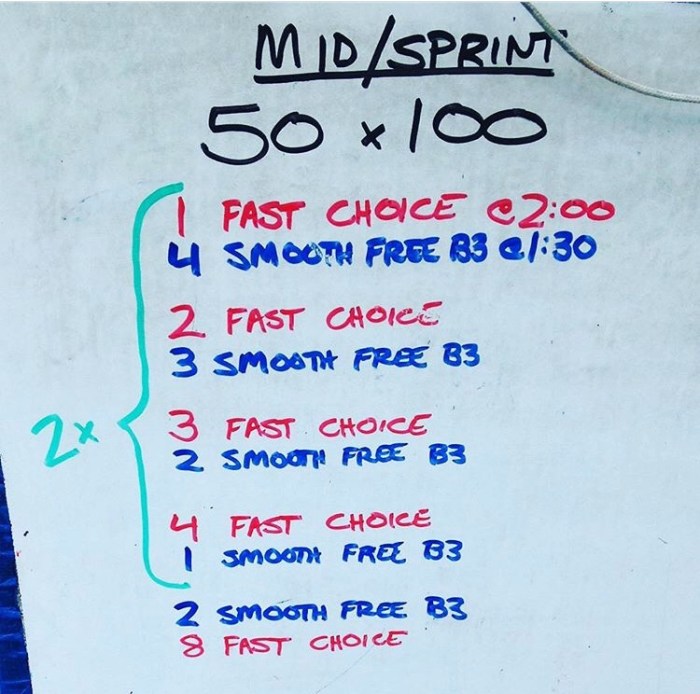 MID/SPRINT
50 x 100
1 FAST CHOICE @2:00
4 SMOOTH FREE B3 @1:30
2 FAST CHOICE
3 SMOOTH FREE B3
2x
3 FAST CHOICE
2 SMOOTH FREE B3
4 FAST CHOICE
1 SMOOTH FREE B3
2 SMOOTH FREE B3
8 FAST CHOICE